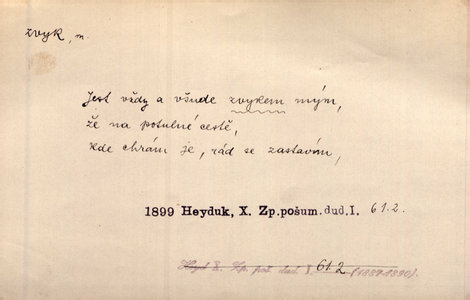 zvyk, m.
Jest vždy a všude zvykem mým,
že na potulné cestě,
kde chrám je, rád se zastavím,
1899 Heyduk, X. Zp.pošum.dud.I. 61.2.
Heyd X. Zp. poš. dud. I. 61.2 (1887-1890).